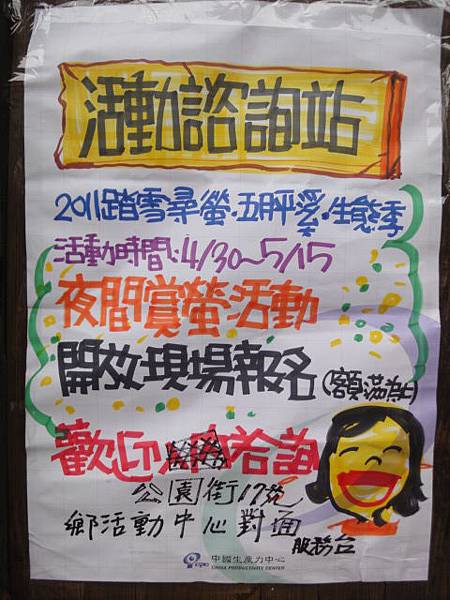 活動諮詢站
2011踏雪尋螢.五月平溪.生態季
活動時間:4/30~5/15
夜間賞螢活動
開放現場報名(額滿為止)
歡迎洽詢
公園街17號
鄉活動中心對面
服務台
cpc 中國生產力中心
CHINA PRODUCTIVITY CENTER